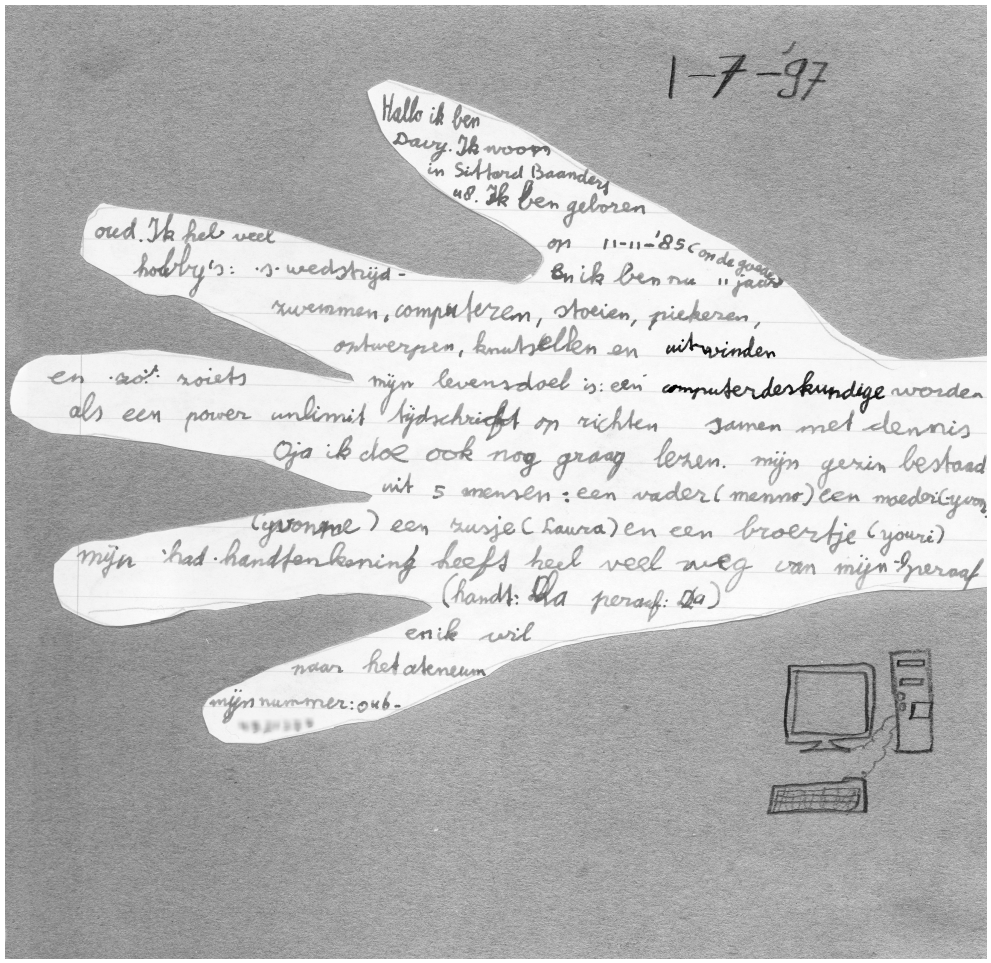 1-7-'97
Hallo ik ben
Davy. Ik woon
in Sittard Baandert
48. Ik ben geboren
op 11-11-'85 (on de goede
En ik ben nu 11 jaar
oud. Ik heb veel
hobby's: s. wedstrijd-
zwemmen, computeren, stoeien, piekeren,
ontwerpen, knutsellen en uitwinden
en zo'. zoiets mijn levensdoel is: een computerdeskundige worden
als een power unlimit tijdschrift op richten samen met dennis
Oja ik doe ook nog graag lezen. mijn gezin bestaad
uit 5 mensen: een vader (menno) een moeder (yvon
(yvonne) een zusje (Laura) en een broertje (youri)
mijn had handtenkening heeft heel veel weg van mijn peraaf
(handt: Da peraaf: Da)
en ik wil
naar het ateneum
mijn nummer: 046-